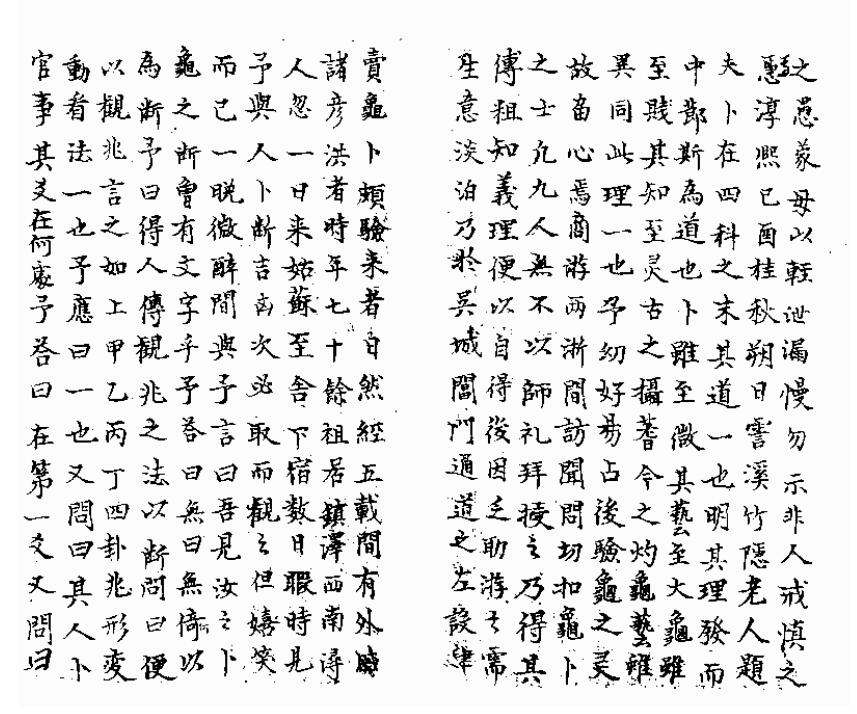 之愚蒙毋以輕泄漏慢勿示非人戒慎之
慐淳熈已酉桂秋朔日霅溪竹隱老人題
夫卜在四科之末其道一也明其理發而
中鄁斯為道也卜雖至微其藝至大龜雖
至賤其知至灵古之攝蓍今之灼龜藝雖
異同此理一也予幼好昜占後驗龜之灵
故畄心焉商游两浙間訪聞問切扣龜卜
之士凢九人無不以師礼拜授之乃得其
傳粗知義理便以自得後因乏助游之需
生意淡泊乃於吴城閶門通道之左設肆
賣龜卜頗驗来者自然經五載間有外戚
諸彦洪者時年七十餘祖居鎮澤西南潯
人忽一日来姑蘇至舎下宿数日暇時見
予與人卜断吉凶次必取而觀之但嬉笑
而已一晩微醉間與予言曰吾見汝之卜
龜之断曾有文字乎予荅曰無曰無倚以
為断予曰得人傳觀兆之法以断問曰便
以觀兆言之如上甲乙丙丁四卦兆形変
動者法一也予應曰一也又問曰其人卜
官事其爻在何處予荅曰在第一爻又問曰